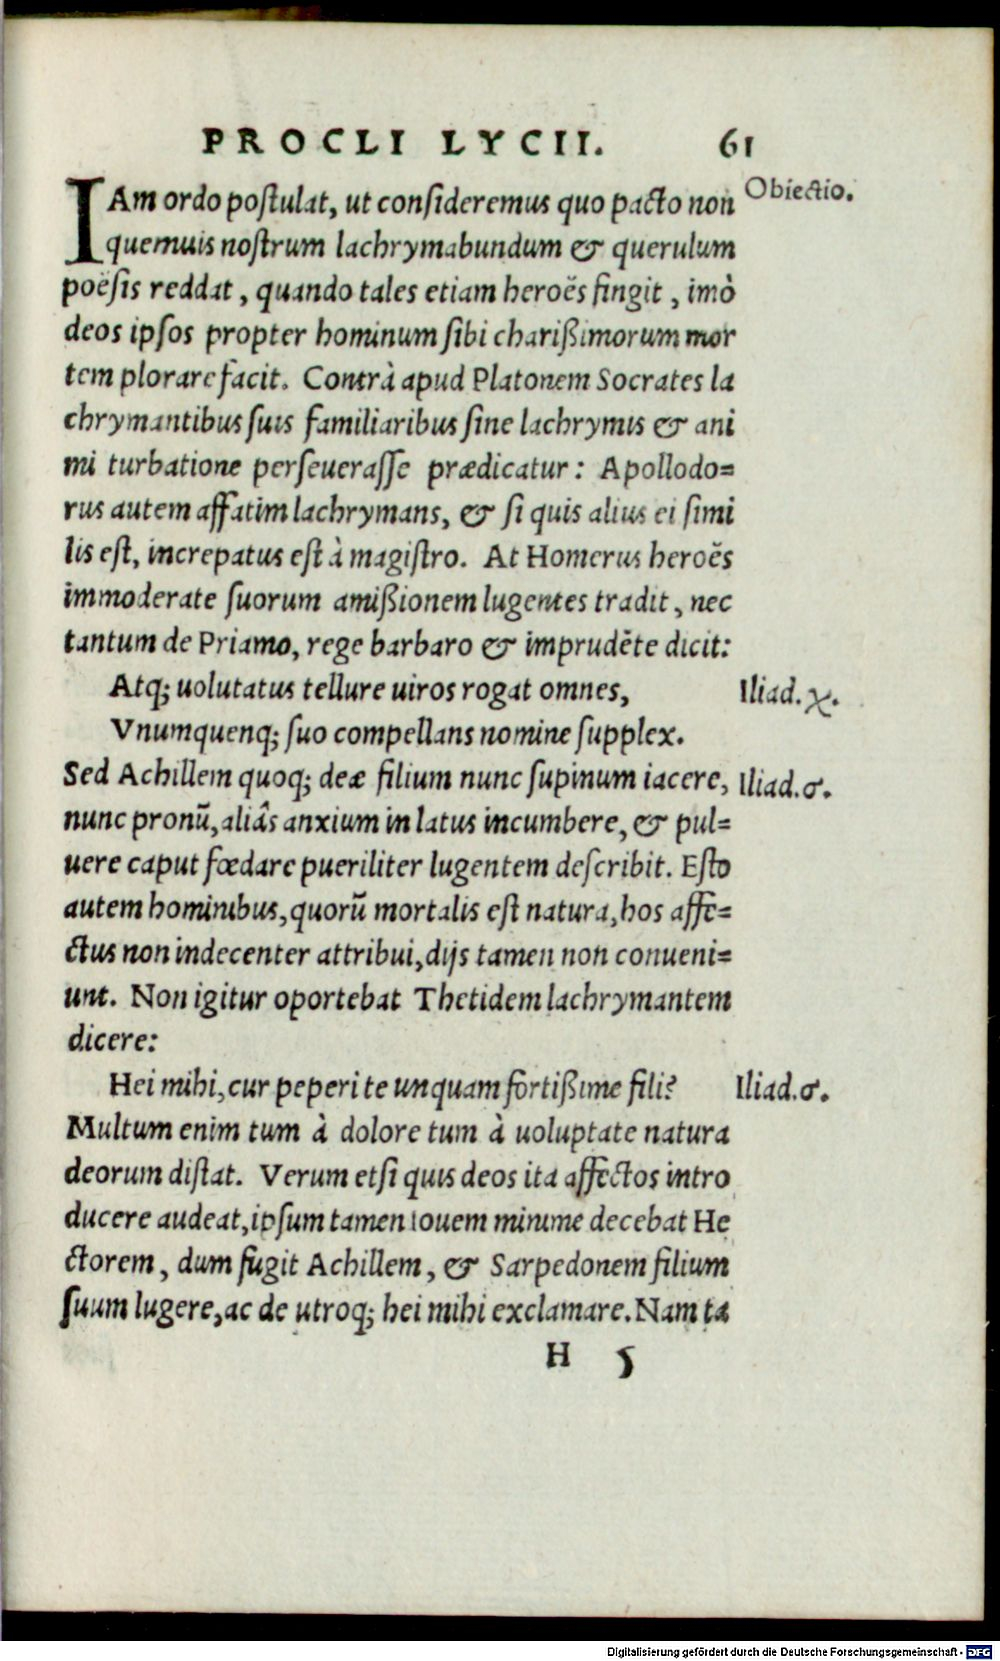 PROCLI LYCII. 61
IAm ordo postulat, ut consideremus quo pacto non
Obiectio.
quemuis nostrum lachrymabundum & querulum
poësis reddat, quando tales etiam heroës fingit, imò
deos ipsos propter hominum sibi charißimorum mor
tem plorare facit. Contrà apud Platonem Socrates la
chrymantibus suis familiaribus sine lachrymis & ani
mi turbatione perseuerasse prædicatur: Apollodo=
rus autem affatim lachrymans, & si quis alius ei simi
lis est, increpatus est à magistro. At Homerus heroës
immoderate suorum amißionem lugentes tradit, nec
tantum de Priamo, rege barbaro & imprudēte dicit:
Atq; uolutatus tellure uiros rogat omnes,
Iliad. χ.
Vnumquenq; suo compellans nomine supplex.
Sed Achillem quoq; deæ filium nunc supinum iacere,
Iliad. σ.
nunc pronū, aliâs anxium in latus incumbere, & pul=
uere caput fœdare pueriliter lugentem describit. Esto
autem hominibus, quorū mortalis est natura, hos affe=
ctus non indecenter attribui, dijs tamen non conueni=
unt. Non igitur oportebat Thetidem lachrymantem
dicere:
Hei mihi, cur peperi te unquam fortißime fili?
Iliad. σ.
Multum enim tum à dolore tum à uoluptate natura
deorum distat. Verum etsi quis deos ita affectos intro
ducere audeat, ipsum tamen iouem minime decebat He
ctorem, dum fugit Achillem, & Sarpedonem filium
suum lugere, ac de utroq; hei mihi exclamare. Nam ta
H 5
Digitalisierung gefördert durch die Deutsche Forschungsgemeinschaft - DFG